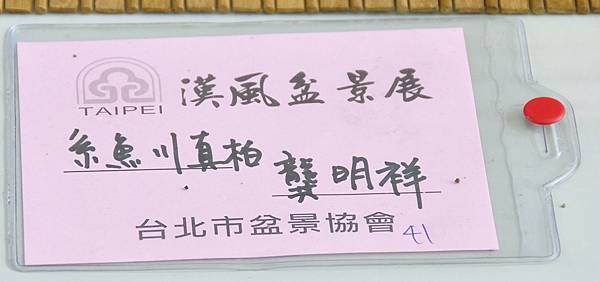 TAIPEI 漢風盆景展
糸魚川真柏 龔明祥
台北市盆景協會 41